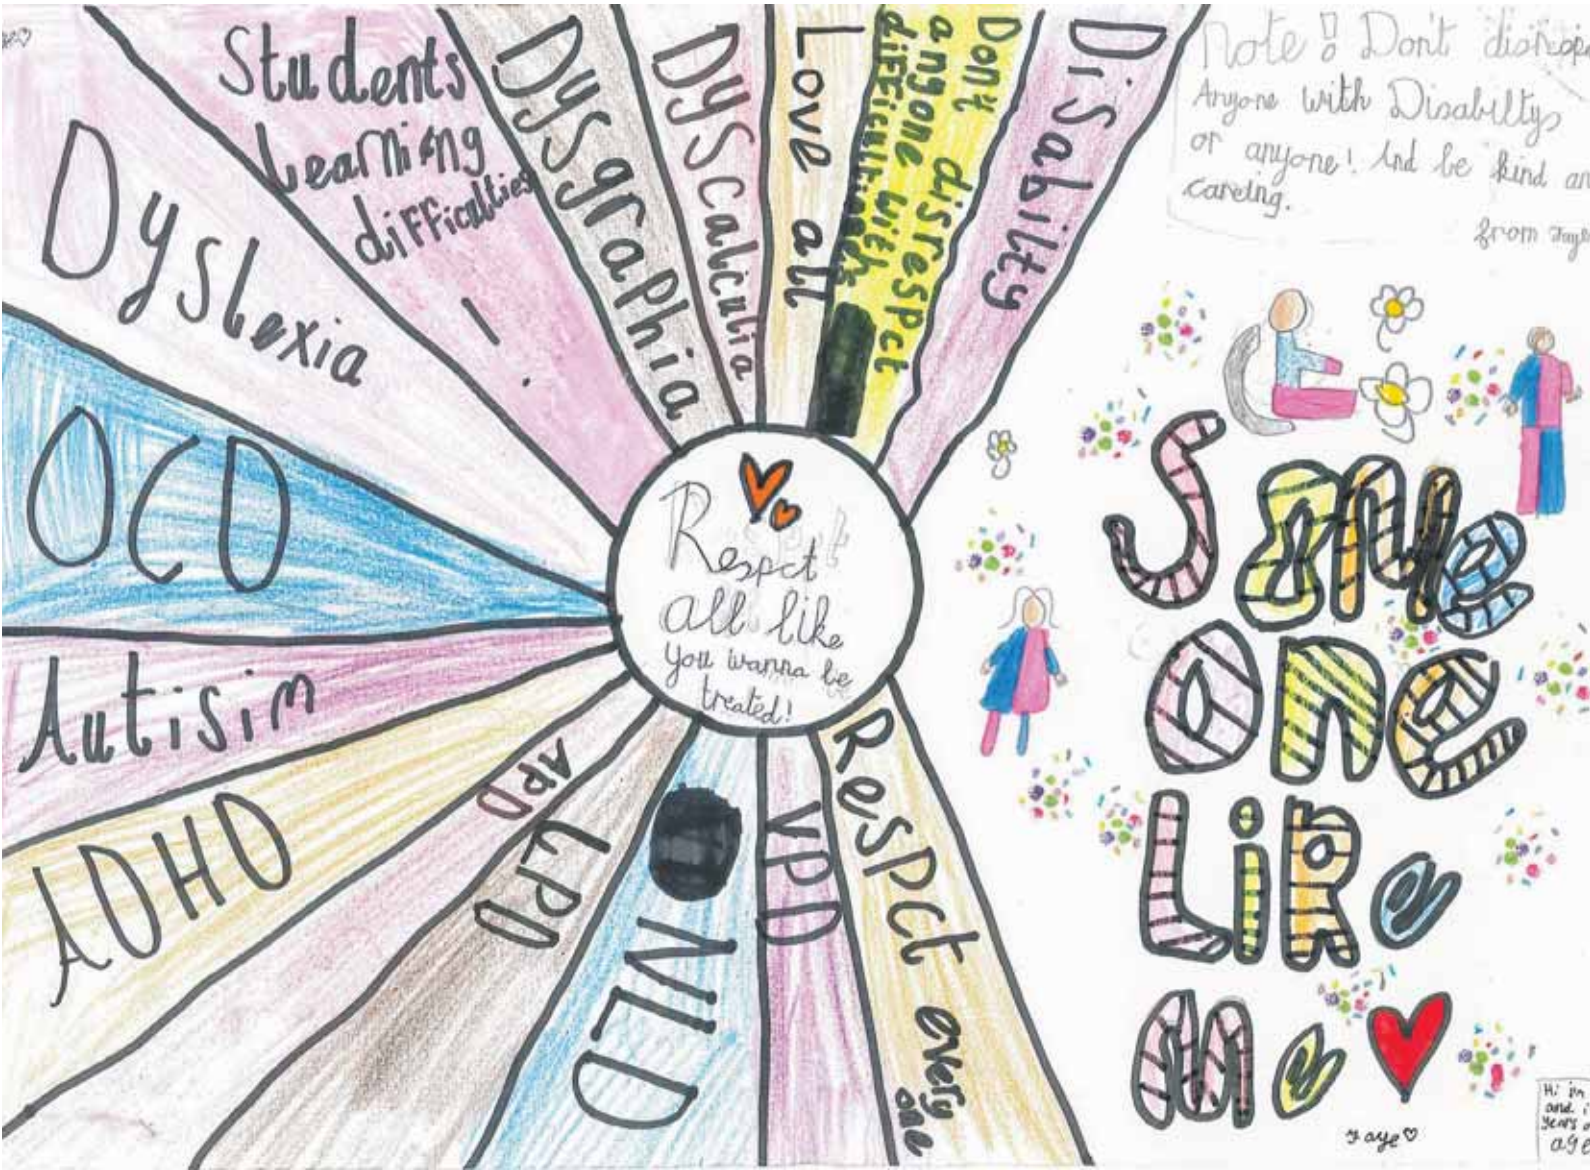 Students
Learning
difficulties
!
Dysgraphia
Dyscalculia
Love all
Dont disrespct
angone with
difficulties
Disability
Note! Don't
Anyone with Disabiltys
or anyone! And be kind an
careing.
from
Dyslexia
OCD
Autisim
ADHD
APD
LPD
NLD
VPD
Respct every
one
Respct
all like
you wanna be
treated!
Some
one
Like
me
Faye
Hi im
and i
years o
age